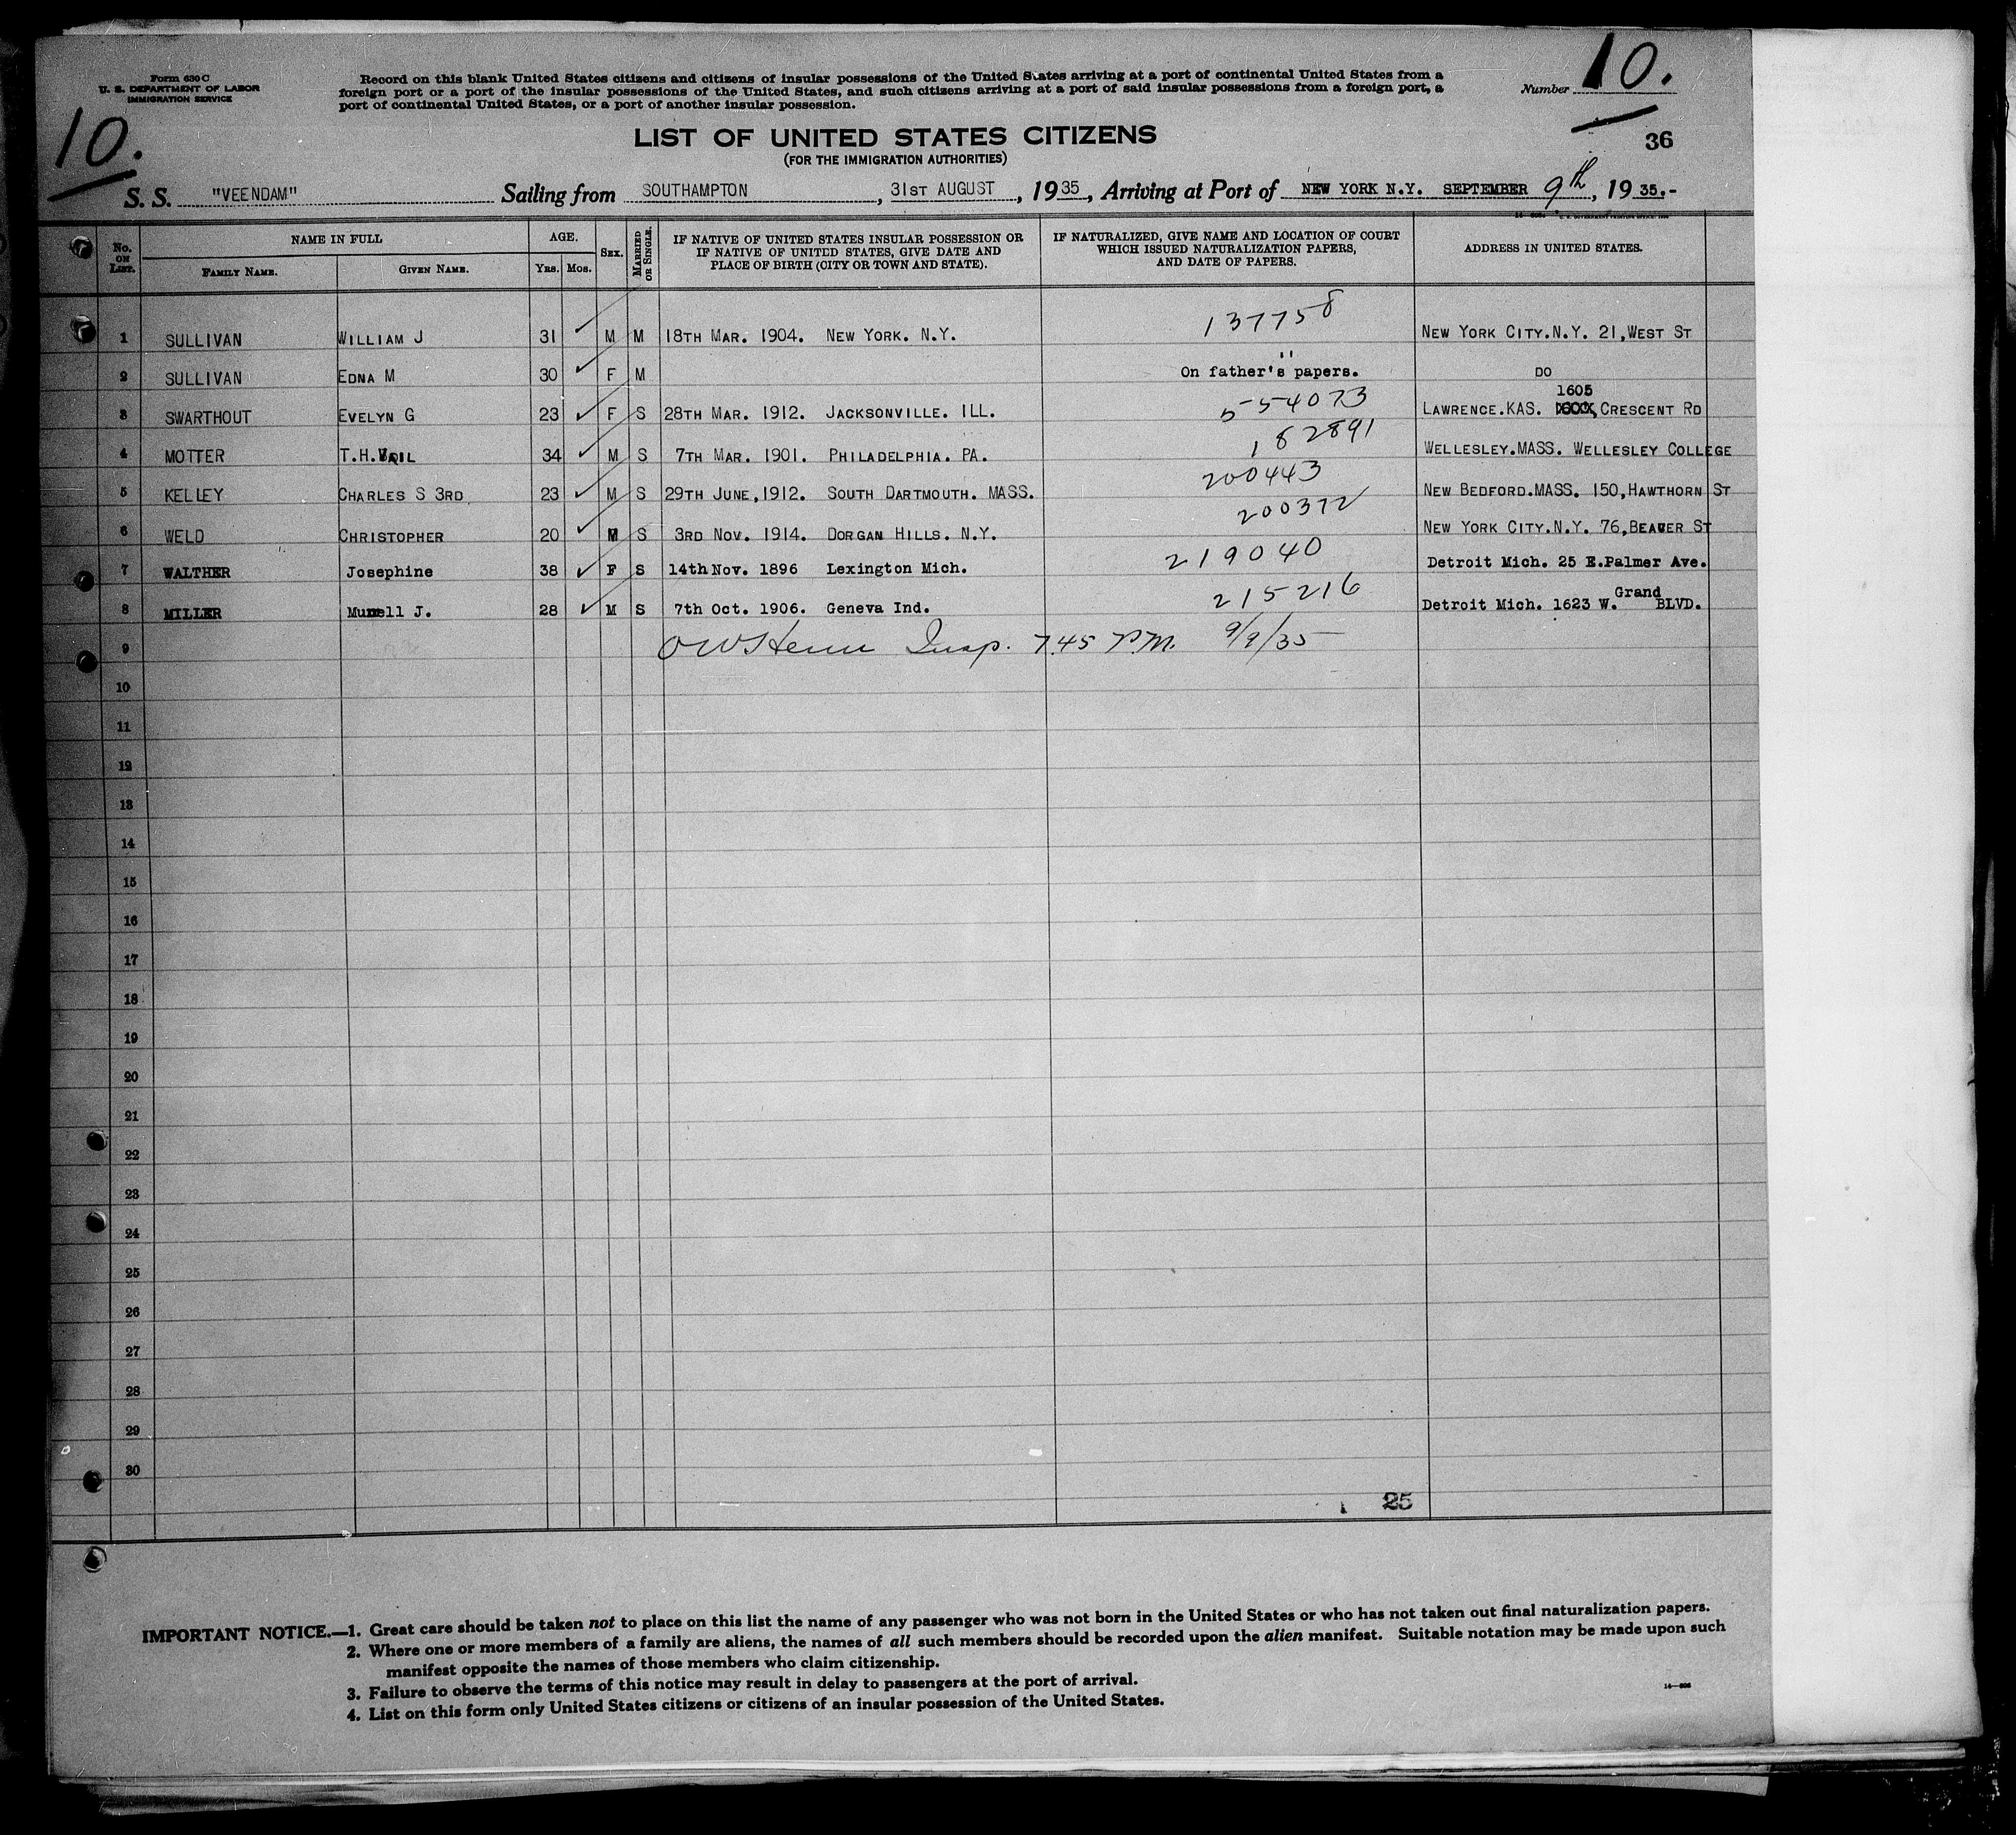 Form 630 C
U. S. DEPARTMENT OF LABOR
IMMIGRATION SERVICE
Record on this blank United States citizens and citizens of insular possessions of the United States arriving at a port of continental United States from a
foreign port or a port of the insular possessions of the United States, and such citizens arriving at a port of said insular possessions from a foreign port, a
port of continental United States, or a port of another insular possession.
Number 10.
10.
LIST OF UNITED STATES CITIZENS
(FOR THE IMMIGRATION AUTHORITIES)
36
S. S. "VEENDAM" Sailing from SOUTHAMPTON, 31ST AUGUST, 1935, Arriving at Port of NEW YORK N.Y. SEPTEMBER 9th, 1935.-
No. ON LIST. NAME IN FULL FAMILY NAME. GIVEN NAME. AGE. YRS. MOS. SEX. MARRIED OR SINGLE. IF NATIVE OF UNITED STATES INSULAR POSSESSION OR IF NATIVE OF UNITED STATES, GIVE DATE AND PLACE OF BIRTH (CITY OR TOWN AND STATE). IF NATURALIZED, GIVE NAME AND LOCATION OF COURT WHICH ISSUED NATURALIZATION PAPERS, AND DATE OF PAPERS. ADDRESS IN UNITED STATES.
1 SULLIVAN WILLIAM J 31 ✓ M M 18TH MAR. 1904. NEW YORK. N.Y. 137758 NEW YORK CITY.N.Y. 21,WEST ST
2 SULLIVAN EDNA M 30 ✓ F M " On father's papers. DO
3 SWARTHOUT EVELYN G 23 ✓ F S 28TH MAR. 1912. JACKSONVILLE. ILL. 554073 LAWRENCE.KAS. 1605 CRESCENT RD
4 MOTTER T.H.VAIL 34 ✓ M S 7TH MAR. 1901. PHILADELPHIA. PA. 182891 WELLESLEY.MASS. WELLESLEY COLLEGE
5 KELLEY CHARLES S 3RD 23 ✓ M S 29TH JUNE,1912. SOUTH DARTMOUTH. MASS. 200443 NEW BEDFORD.MASS. 150,HAWTHORN ST
6 WELD CHRISTOPHER 20 ✓ M S 3RD NOV. 1914. DORGAN HILLS. N.Y. 200372 NEW YORK CITY.N.Y. 76,BEAVER ST
7 WALTHER Josephine 38 ✓ F S 14th Nov. 1896 Lexington Mich. 219040 Detroit Mich. 25 E.Palmer Ave.
8 MILLER J. 28 ✓ M S 7th Oct. 1906. Geneva Ind. 215216 Detroit Mich. 1623 W. Grand BLVD.
9 Insp. 7.45 P.M. 9/9/35
10
11
12
13
14
15
16
17
18
19
20
21
22
23
24
25
26
27
28
29
30
25
IMPORTANT NOTICE.—1. Great care should be taken not to place on this list the name of any passenger who was not born in the United States or who has not taken out final naturalization papers.
2. Where one or more members of a family are aliens, the names of all such members should be recorded upon the alien manifest. Suitable notation may be made upon such
manifest opposite the names of those members who claim citizenship.
3. Failure to observe the terms of this notice may result in delay to passengers at the port of arrival.
4. List on this form only United States citizens or citizens of an insular possession of the United States.